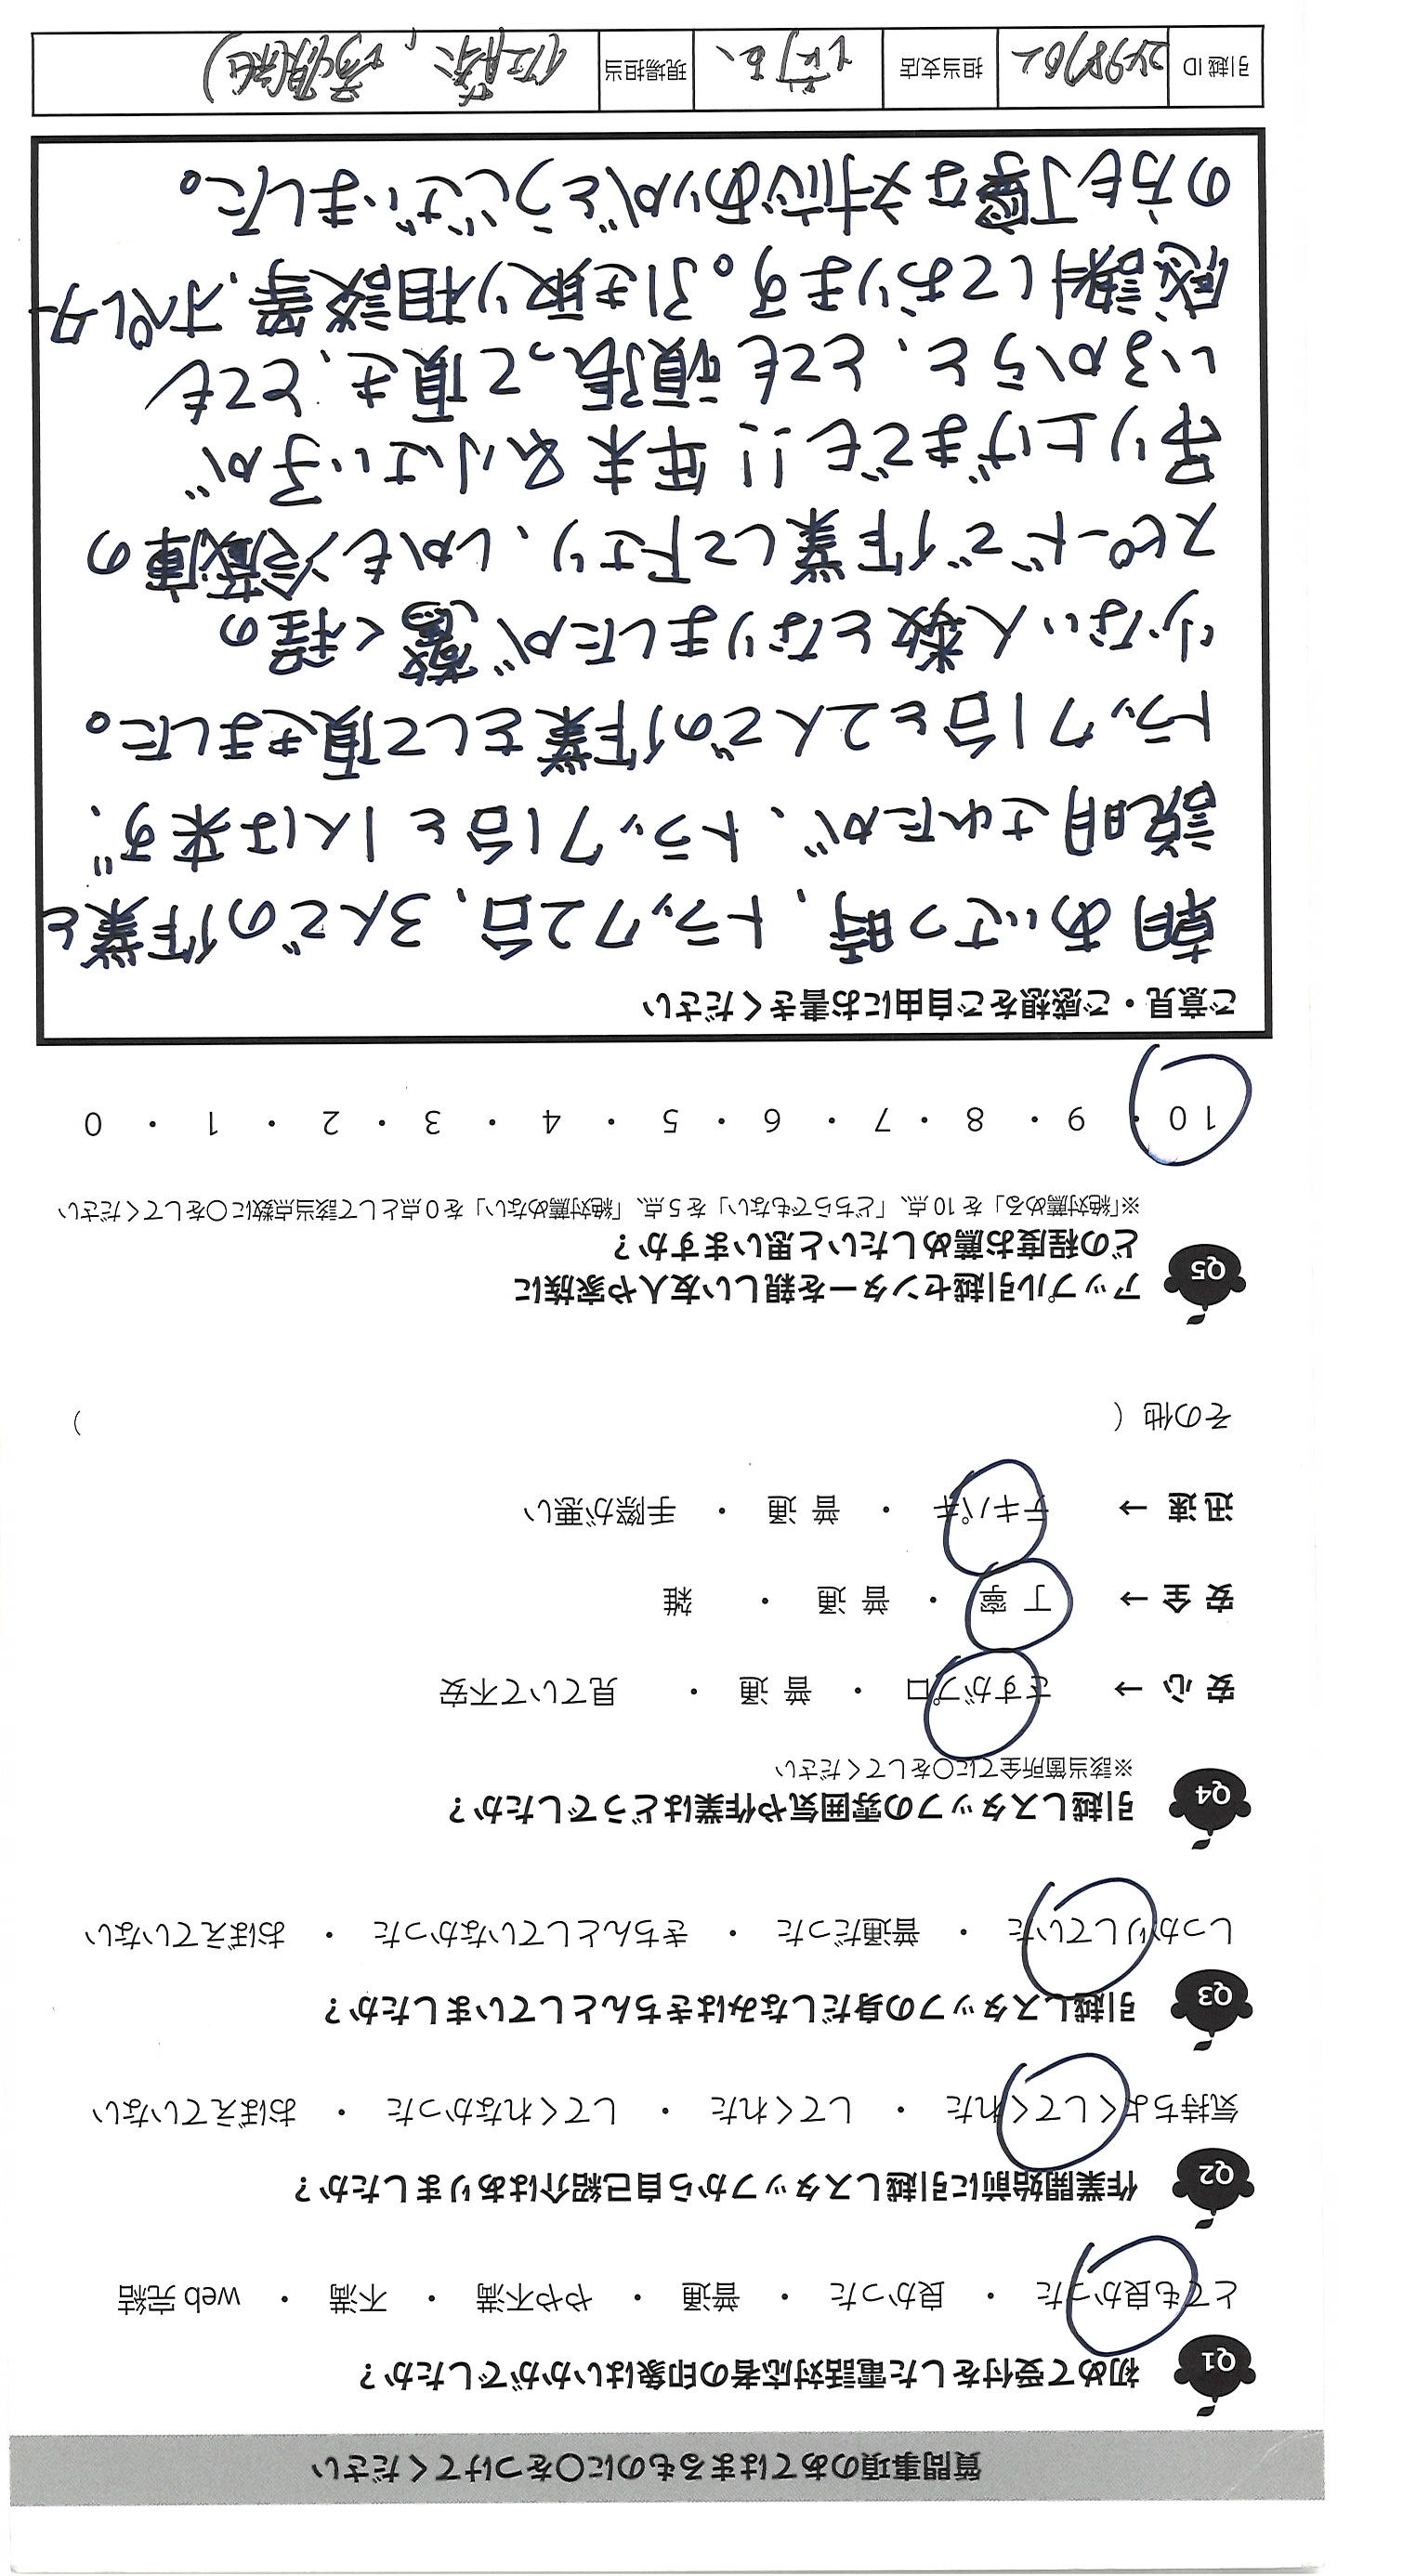 質問事項のあてはまるものに○をつけてください
Q1 初めて受付をした電話対応者の印象はいかがでしたか？
とても良かった ・ 良かった ・ 普通 ・ やや不満 ・ 不満 ・ web 完結
Q2 作業開始前に引越しスタッフから自己紹介はありましたか？
気持ちよくしてくれた ・ してくれた ・ してくれなかった ・ おぼえていない
Q3 引越しスタッフの身だしなみはきちんとしていましたか？
しっかりしていた ・ 普通だった ・ きちんとしていなかった ・ おぼえていない
Q4 引越しスタッフの雰囲気や作業はどうでしたか？
※該当箇所全てに○をしてください
安 心 → さすがプロ ・ 普 通 ・ 見ていて不安
安 全 → 丁 寧 ・ 普 通 ・ 雑
迅 速 → テキパキ ・ 普 通 ・ 手際が悪い
その他（ ）
Q5 アップル引越センターを親しい友人や家族に
どの程度お薦めしたいと思いますか？
※「絶対薦める」を 10 点、「どちらでもない」を 5 点、「絶対薦めない」を 0 点として該当点数に○をしてください
10 ・ 9 ・ 8 ・ 7 ・ 6 ・ 5 ・ 4 ・ 3 ・ 2 ・ 1 ・ 0
ご意見・ご感想をご自由にお書きください
朝あいさつ時、トラック2台、3人での作業と
説明されたが、トラック1台と1人は来ず、
トラック1台と2人での作業をして頂きました。
少ない人数となりましたが驚く程の
スピードで作業して下さり、しかも冷蔵庫の
吊り上げまでも!! 年末&小さい子が
いるからと、とても頑張って頂き、とても
感謝しております。引き取り相談等、オペレター
の方も丁寧な対応ありがとうございました。
引越 ID 担当支店 現場担当